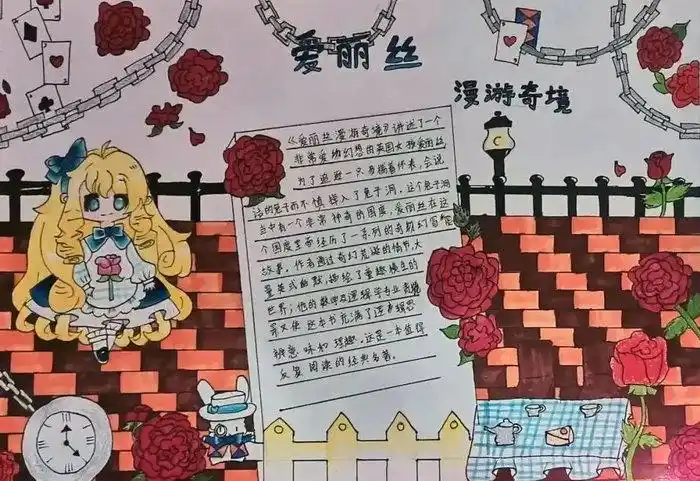 爱丽丝
漫游奇境
《爱丽丝漫游奇境》讲述了一个
非常爱幻想的英国女孩爱丽丝
为了追赶一只揣着怀表、会说
话的兔子而不慎掉入了兔子洞，这个兔子洞
当中有一个非常神奇的国度，爱丽丝在这
个国度里面经历了一系列的奇幻冒险
故事，作者通过奇幻荒诞的情节，大
量英式幽默，描绘了童趣横生的
世界；他的数学及逻辑学专业背
景又使这本书充满了逻辑思
辨意味和理趣。这是一本值得
反复阅读的经典名著。